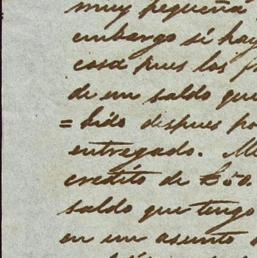 muy pequeña
embargo si hay
cosa pues los
de un saldo que
=bido despues po
entregado. M
credito de £50.
saldo que tengo
en un asunto